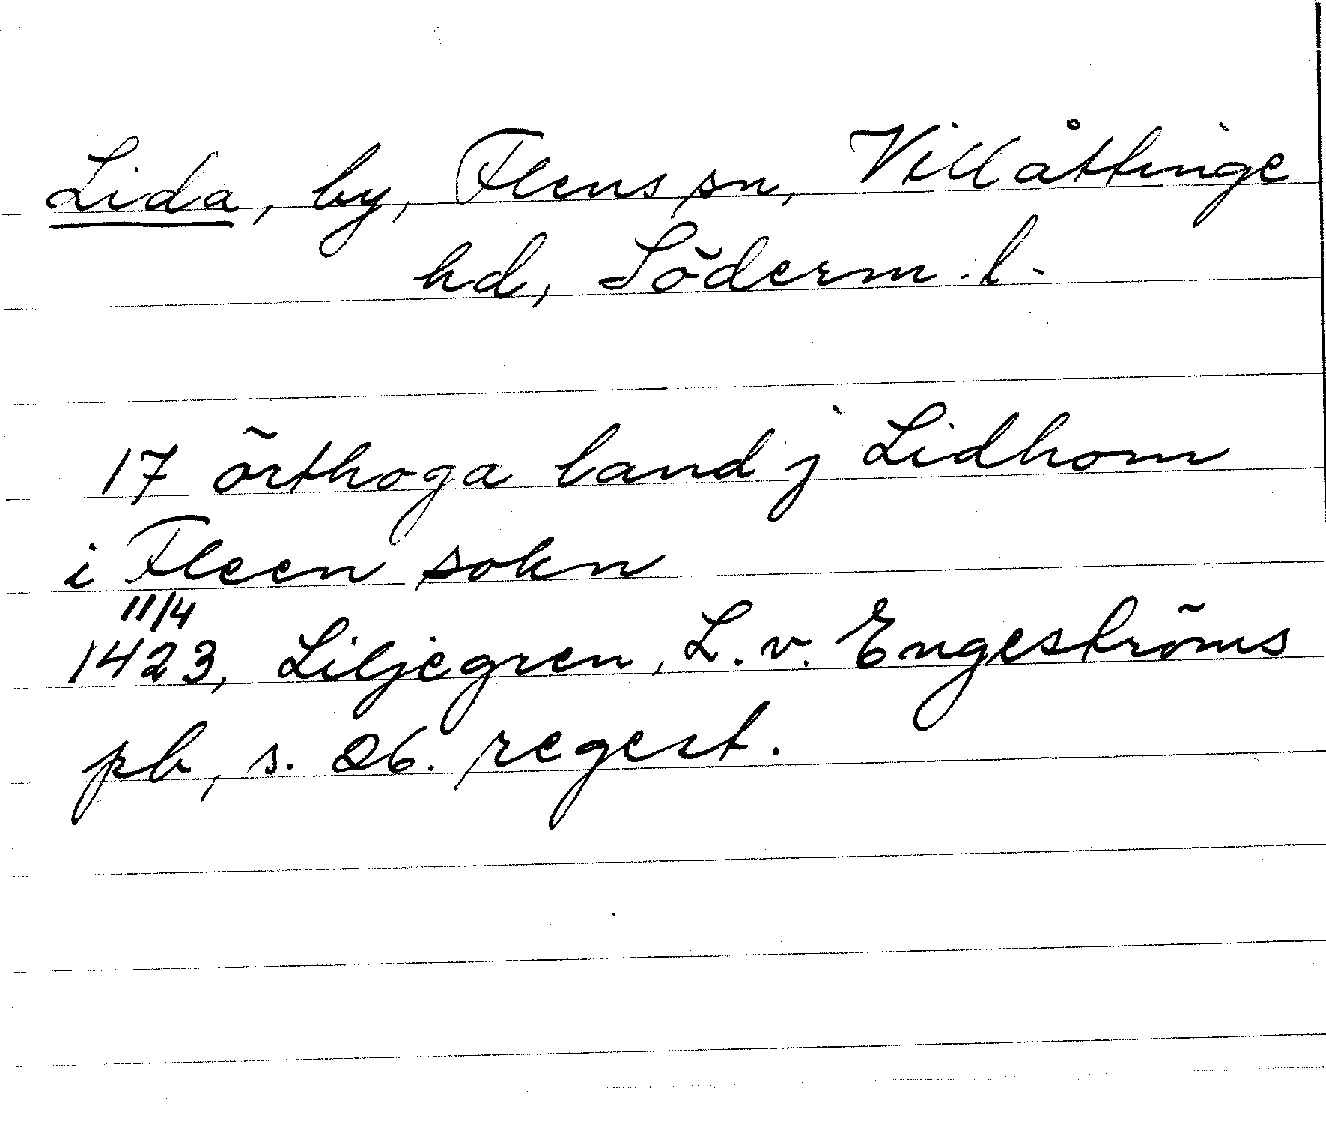 Lida, by, Flens sn, Villåttinge
hd, Söderm. l.
17 örthoga land j Lidhom
i Fleen sokn
11/4
1423, Liljegren, L. v. Engeströms
pb, s. 26. regest.